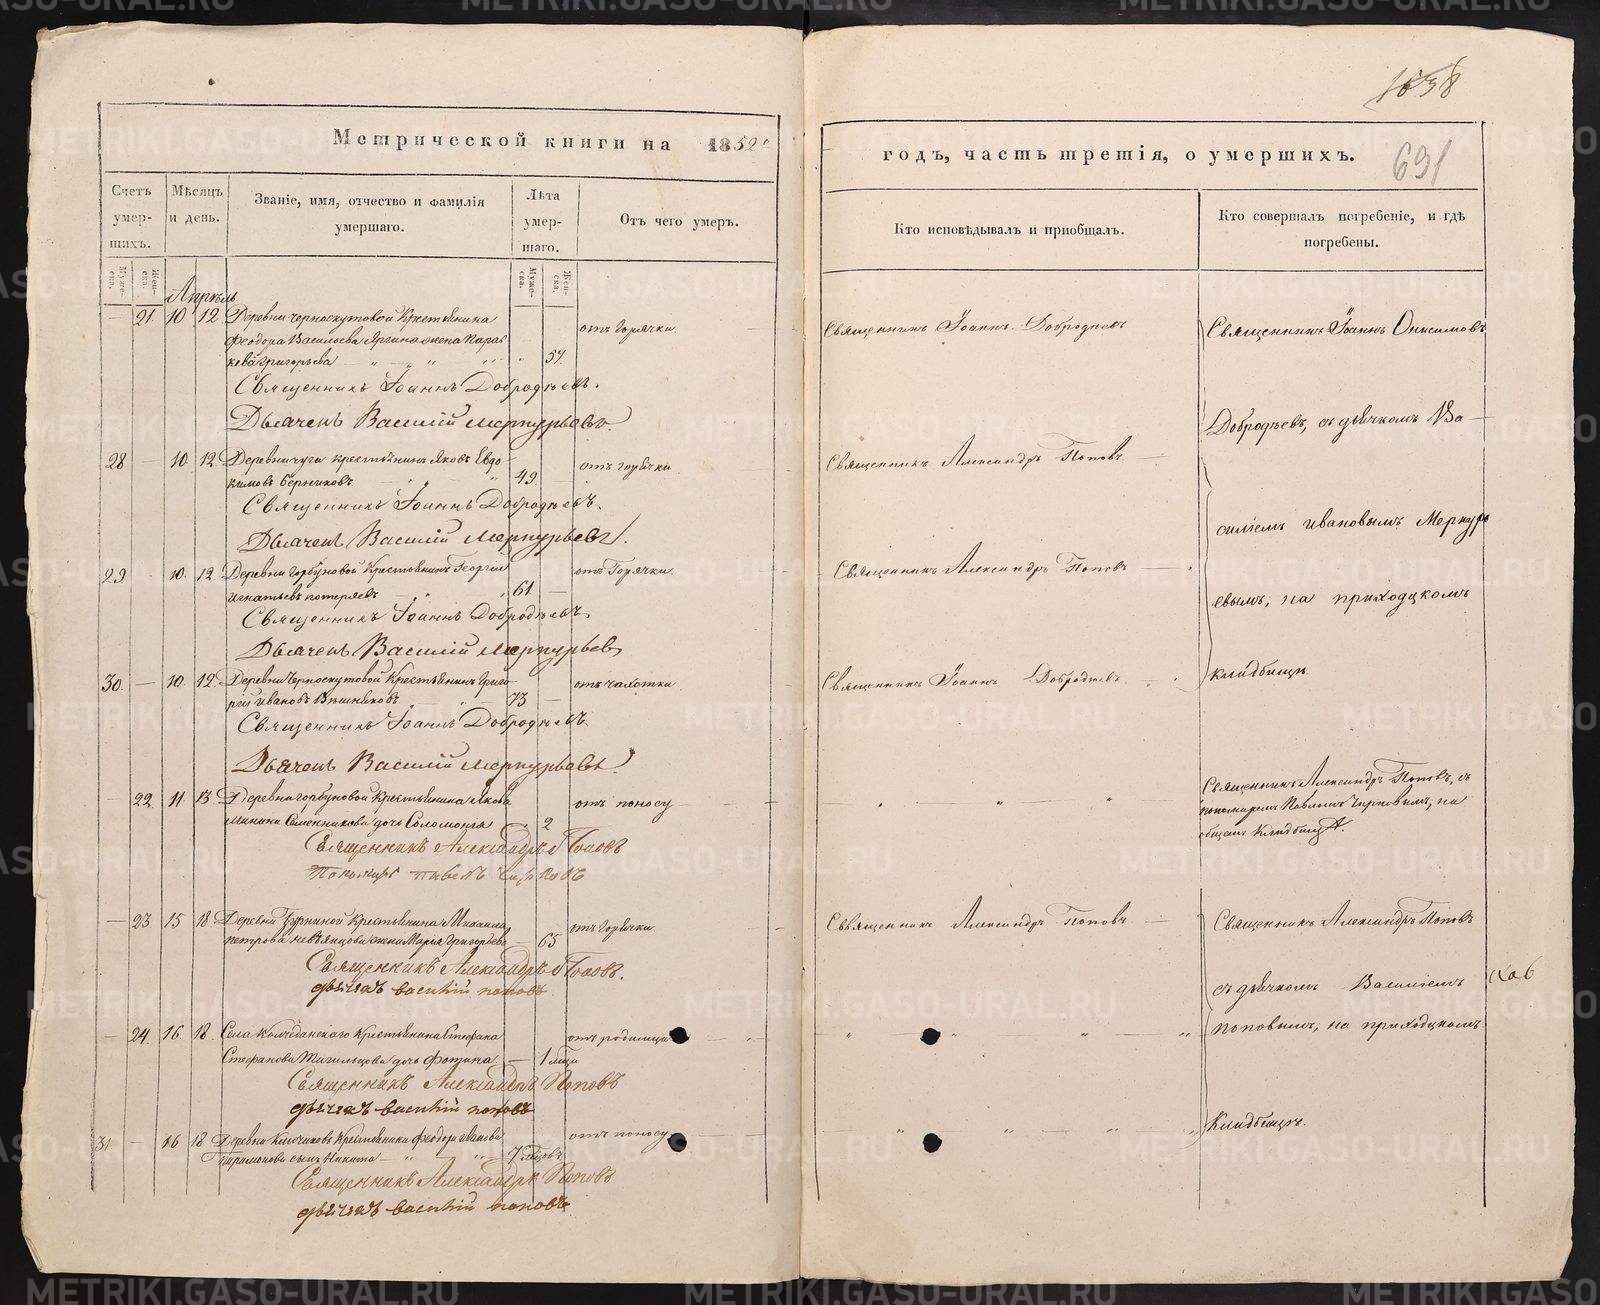 1538
691
Метрической книги на 1852й
годъ, часть третія, о умершихъ.
Счетъ умер-шихъ.
Мѣсяцъ и день.
Званіе, имя, отчество и фамилія умершаго.
Лѣта умер-шаго.
Отъ чего умеръ.
Кто исповѣдывалъ и приобщалъ.
Кто совершалъ погребеніе, и гдѣ погребены.
Муже-ска.
Жен-ска.
Муже-ска.
Жен-ска.
Апрѣль
— 21. 10 12 Деревни Черноскутовой Крестьянина
Феодора Васильева Ярина жена Парас
кева Григорьева 57.
отъ горячки
Священникъ Іоаннъ Добродѣевъ
Священникъ Іоаннъ Онисимовъ
Священникъ Іоаннъ Добродѣевъ.
Дьячекъ Василій Меркурьевъ
Добродѣевъ, съ дьячкомъ Ва-
28 — 10. 12. Деревни крестьянинъ Яковъ Евдо
кимовъ Берниковъ 49
отъ горячки
Священникъ Александръ Поповъ
Священникъ Іоаннъ Добродѣевъ.
Дьячекъ Василій Меркурьевъ.
силіемъ Ивановымъ Меркурь
29 10. 12. Деревни Горбуновой Крестьянинъ Георгій
Игнатьевъ Потеряевъ 61
отъ Горячки.
Священникъ Александръ Поповъ
евымъ, на приходскомъ
Священникъ Іоаннъ Добродѣевъ,
Дьячекъ Василій Меркурьевъ
30. — 10. 12. Деревни Черноскутовой Крестьянинъ Григо-
рій Ивановъ Вѣшниковъ 73
отъ чахотки
Священникъ Іоаннъ Добродѣевъ
кладбищѣ.
Священникъ Іоаннъ Добродѣевъ.
Дьячекъ Василій Меркурьевъ.
— 22. 11. 13 Деревни Горбуновой Крестьянина Якова
Минина дочь Соломонія 2
отъ поносу
Священникъ Александръ Поповъ, съ
пономаремъ Павломъ на
общемъ кладбищѣ.
Священникъ Александръ Поповъ
Пономарь Павелъ
— 23. 15 18 Деревни Бурниной Крестьянина Михаила
Петрова Невьянцова жена Марія Григорьева 65
отъ горячки
Священникъ Александръ Поповъ
Священникъ Александръ Поповъ
Священникъ Александръ Поповъ.
дьячекъ василій поповъ
съ дьячкомъ Василіемъ
— 24. 16. 18. Села Колчеданскаго Крестьянина Стефана
Стефанова дочь Фотина — 1 мѣся
отъ родимца
Поповымъ, на приходскомъ
Священникъ Александръ Поповъ
дьячекъ василій поповъ
кладбищѣ.
31. — 16 18 Деревни Крестьянина Феодора Иванова
сынъ Никита 7 мѣсѧцовъ
отъ поносу
Священникъ Александръ Поповъ
дьячекъ василій поповъ